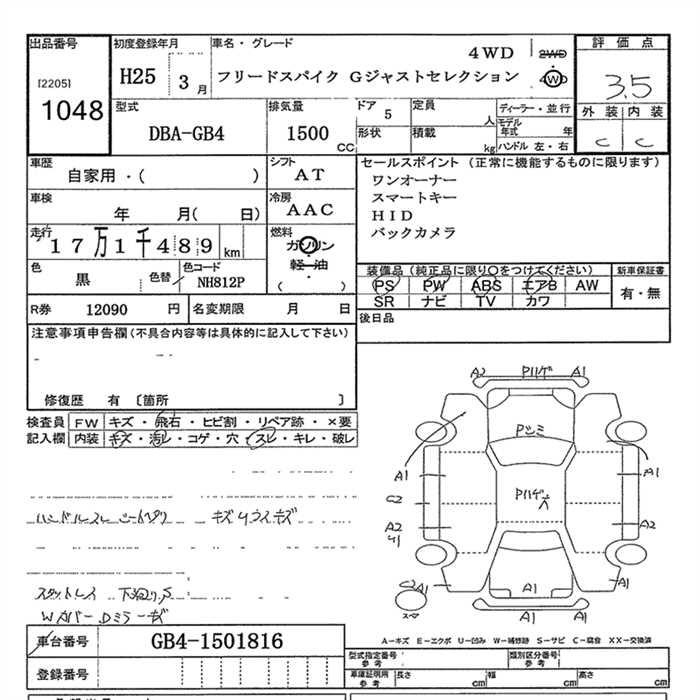 出品番号 初度登録年月 車名・グレード 評価点
[2205] H25 3月 4WD 2WD 4WD
1048 フリードスパイク Gジャストセレクション 3.5
外装 内装
C C
型式 排気量 ドア 定員 ディーラー・並行
DBA-GB4 1500 CC 5 人 モデル年式 年
形状 積載 kg ハンドル 左・右
車歴 シフト セールスポイント (正常に機能するものに限ります)
自家用・( ) AT ワンオーナー
スマートキー
車検 冷房 HID
年 月( 日) AAC バックカメラ
走行 燃料
17万1千489 km ガソリン
軽・油
( )
色 色替 色コード 装備品 (純正品に限り○をつけてください) 新車保証書
黒 NH812P PS PW ABS エアB AW 有・無
SR ナビ TV カワ
R券 12090 円 名変期限 月 日 後日品
注意事項申告欄(不具合内容等は具体的に記入して下さい)
修復歴 有 〔箇所 〕
検査員 FW キズ・飛石・ヒビ割・リペア跡・×要
記入欄 内装 キズ・汚レ・コゲ・穴・スレ・キレ・破レ
A2 A1
A1 A1
C2
A2 A2
A1 A1
A1 A1
A-キズ E-エクボ U-凹み W-補修跡 S-サビ C-腐食 XX-交換済
車台番号 GB4-1501816
登録番号
型式指定番号 参考 類別区分番号 参考
車庫証明用 参考 長さ cm 幅 cm 高さ cm